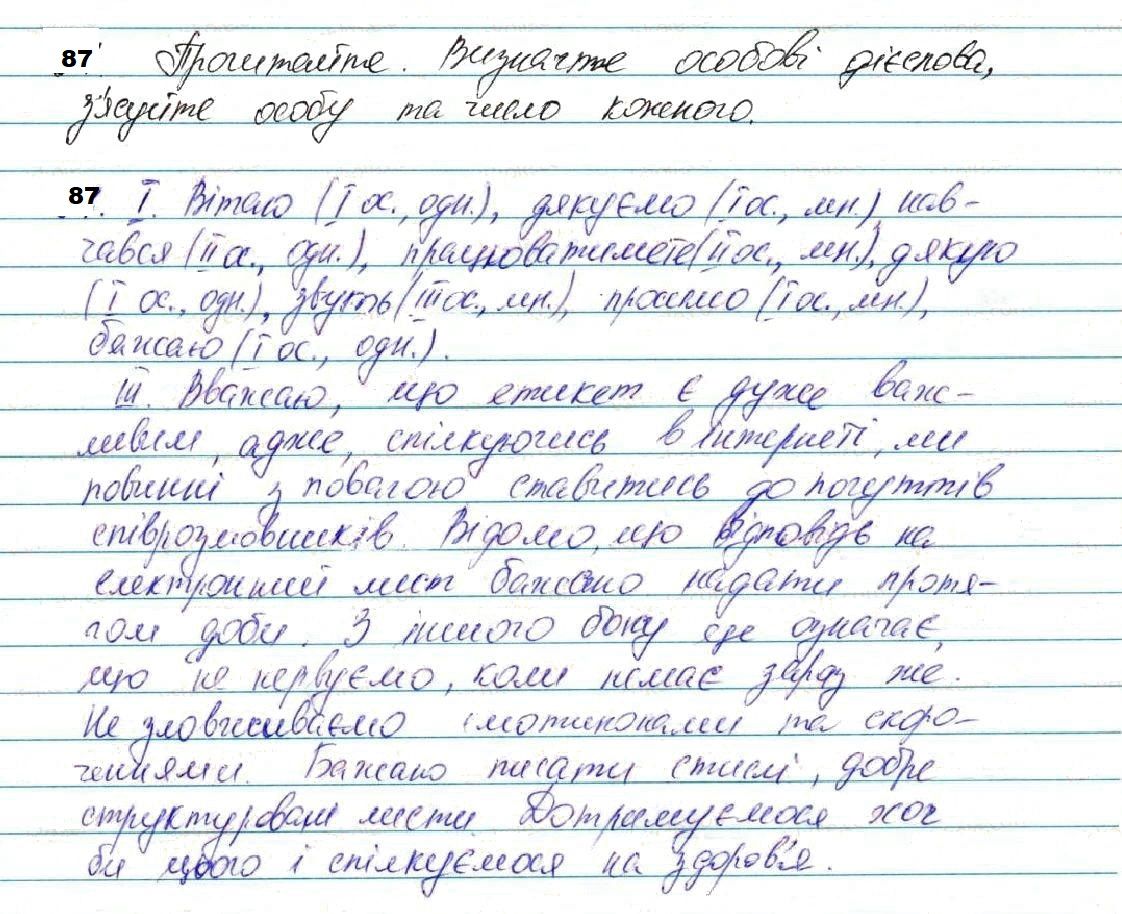 87 Прочитайте. Визначте особові дієслова,
з'ясуйте особу та число кожного.
87. I. Вітаю (I ос., одн.), дякуємо (I ос., мн.), нав-
чався (II ос., одн.), працюватимете (II ос., мн.), дякую
(I ос., одн.), звуть (III ос., мн.), просимо (I ос., мн.),
бажаю (I ос., одн.).
III. Вважаю, що етикет є дуже важ-
ливим, адже, спілкуючись в інтернеті, ми
повинні з повагою ставитись до почуттів
співрозмовників. Відомо, що відповідь на
електронний лист бажано надати протя-
гом доби. З іншого боку це означає,
що не нервуємо, коли немає зараз же.
Не зловживаємо смотиконами та скоро-
ченнями. Бажано писати стислі, добре
структуровані листи. Дотримуємося хоч
би цього і спілкуємося на здоров'я.